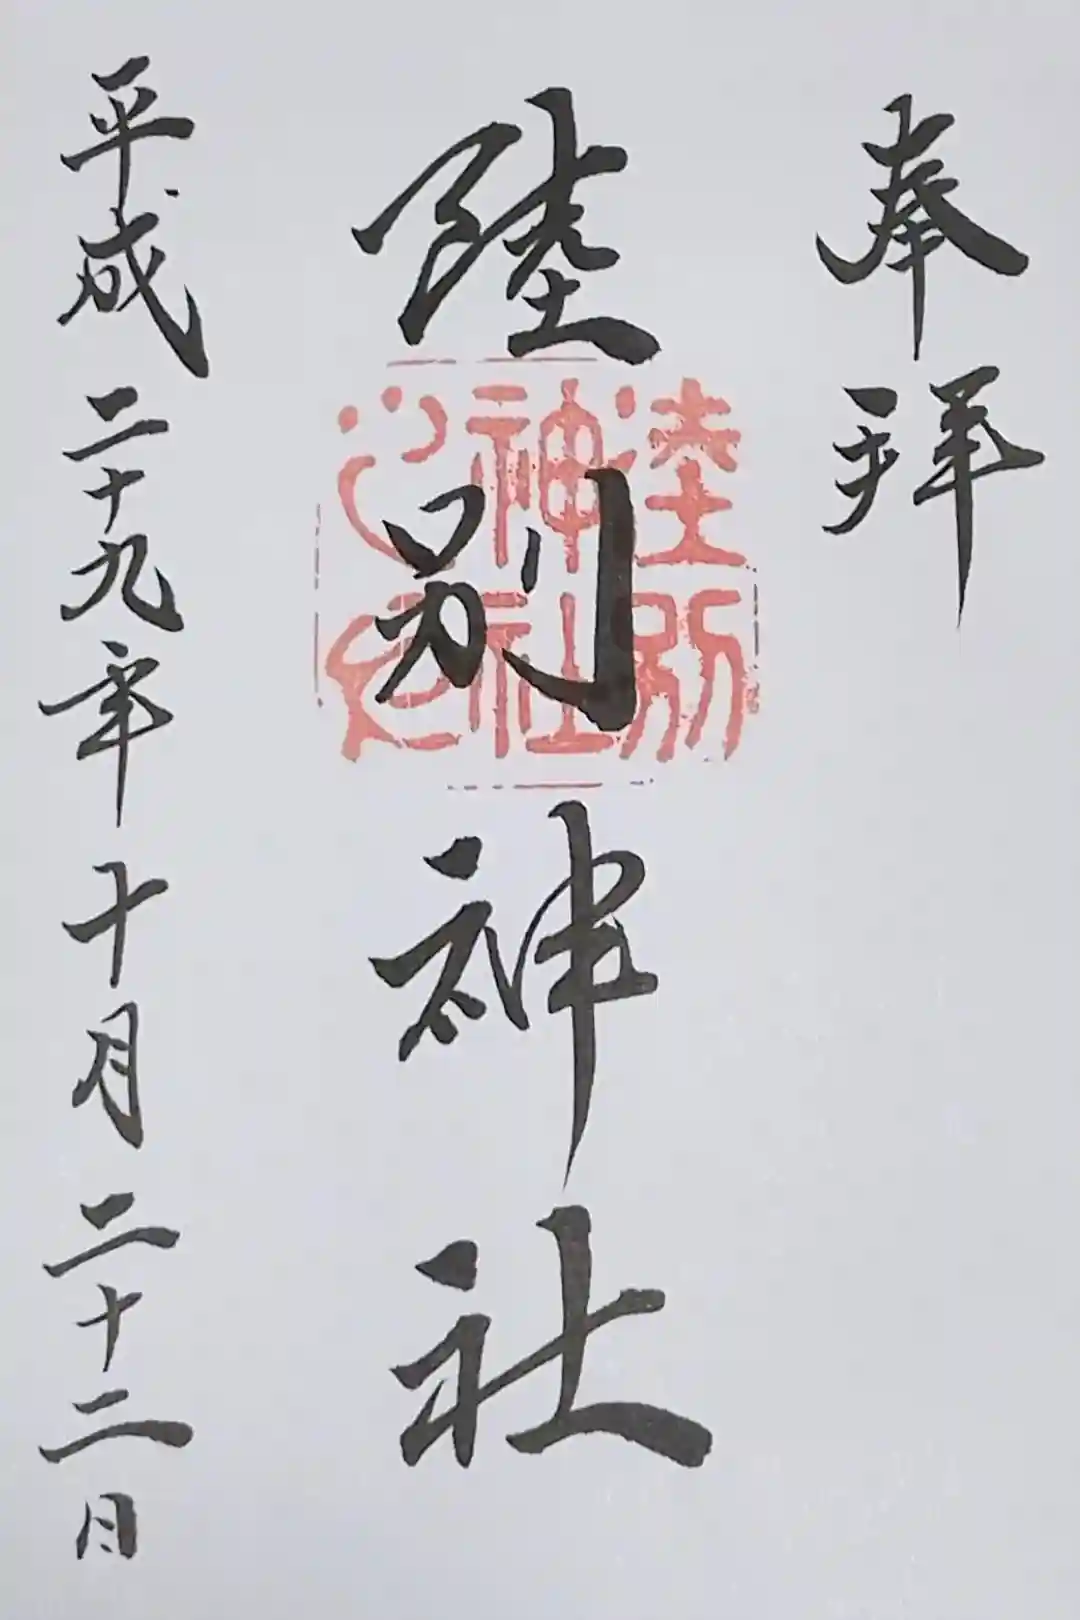 奉拝
陸別神社
陸別
神社
之印
平成二十九年十月二十二日